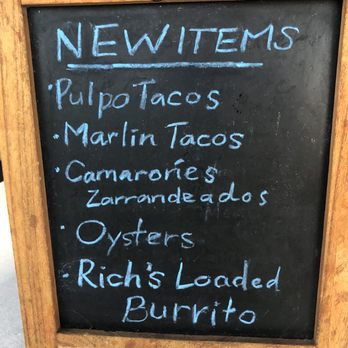 NEW ITEMS
· Pulpo Tacos
· Marlin Tacos
· Camarones
Zarrandeados
· Oysters
· Rich's Loaded
Burrito